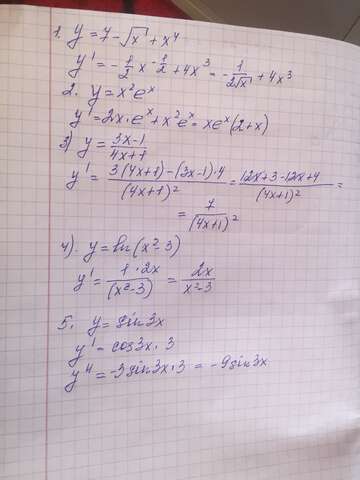 1. y = 7 - √x + x⁴
y' = -1/2 x^(-1/2) + 4x³ = -1/(2√x) + 4x³
2. y = x²eˣ
y' = 2x·eˣ + x²eˣ = xeˣ(2+x)
3) y = (3x-1)/(4x+1)
y' = (3(4x+1) - (3x-1)·4)/(4x+1)² = (12x+3-12x+4)/(4x+1)² =
= 7/(4x+1)²
4). y = ln(x²-3)
y' = (1·2x)/(x²-3) = 2x/(x²-3)
5. y = sin3x
y' = cos3x·3
y'' = -3sin3x·3 = -9sin3x